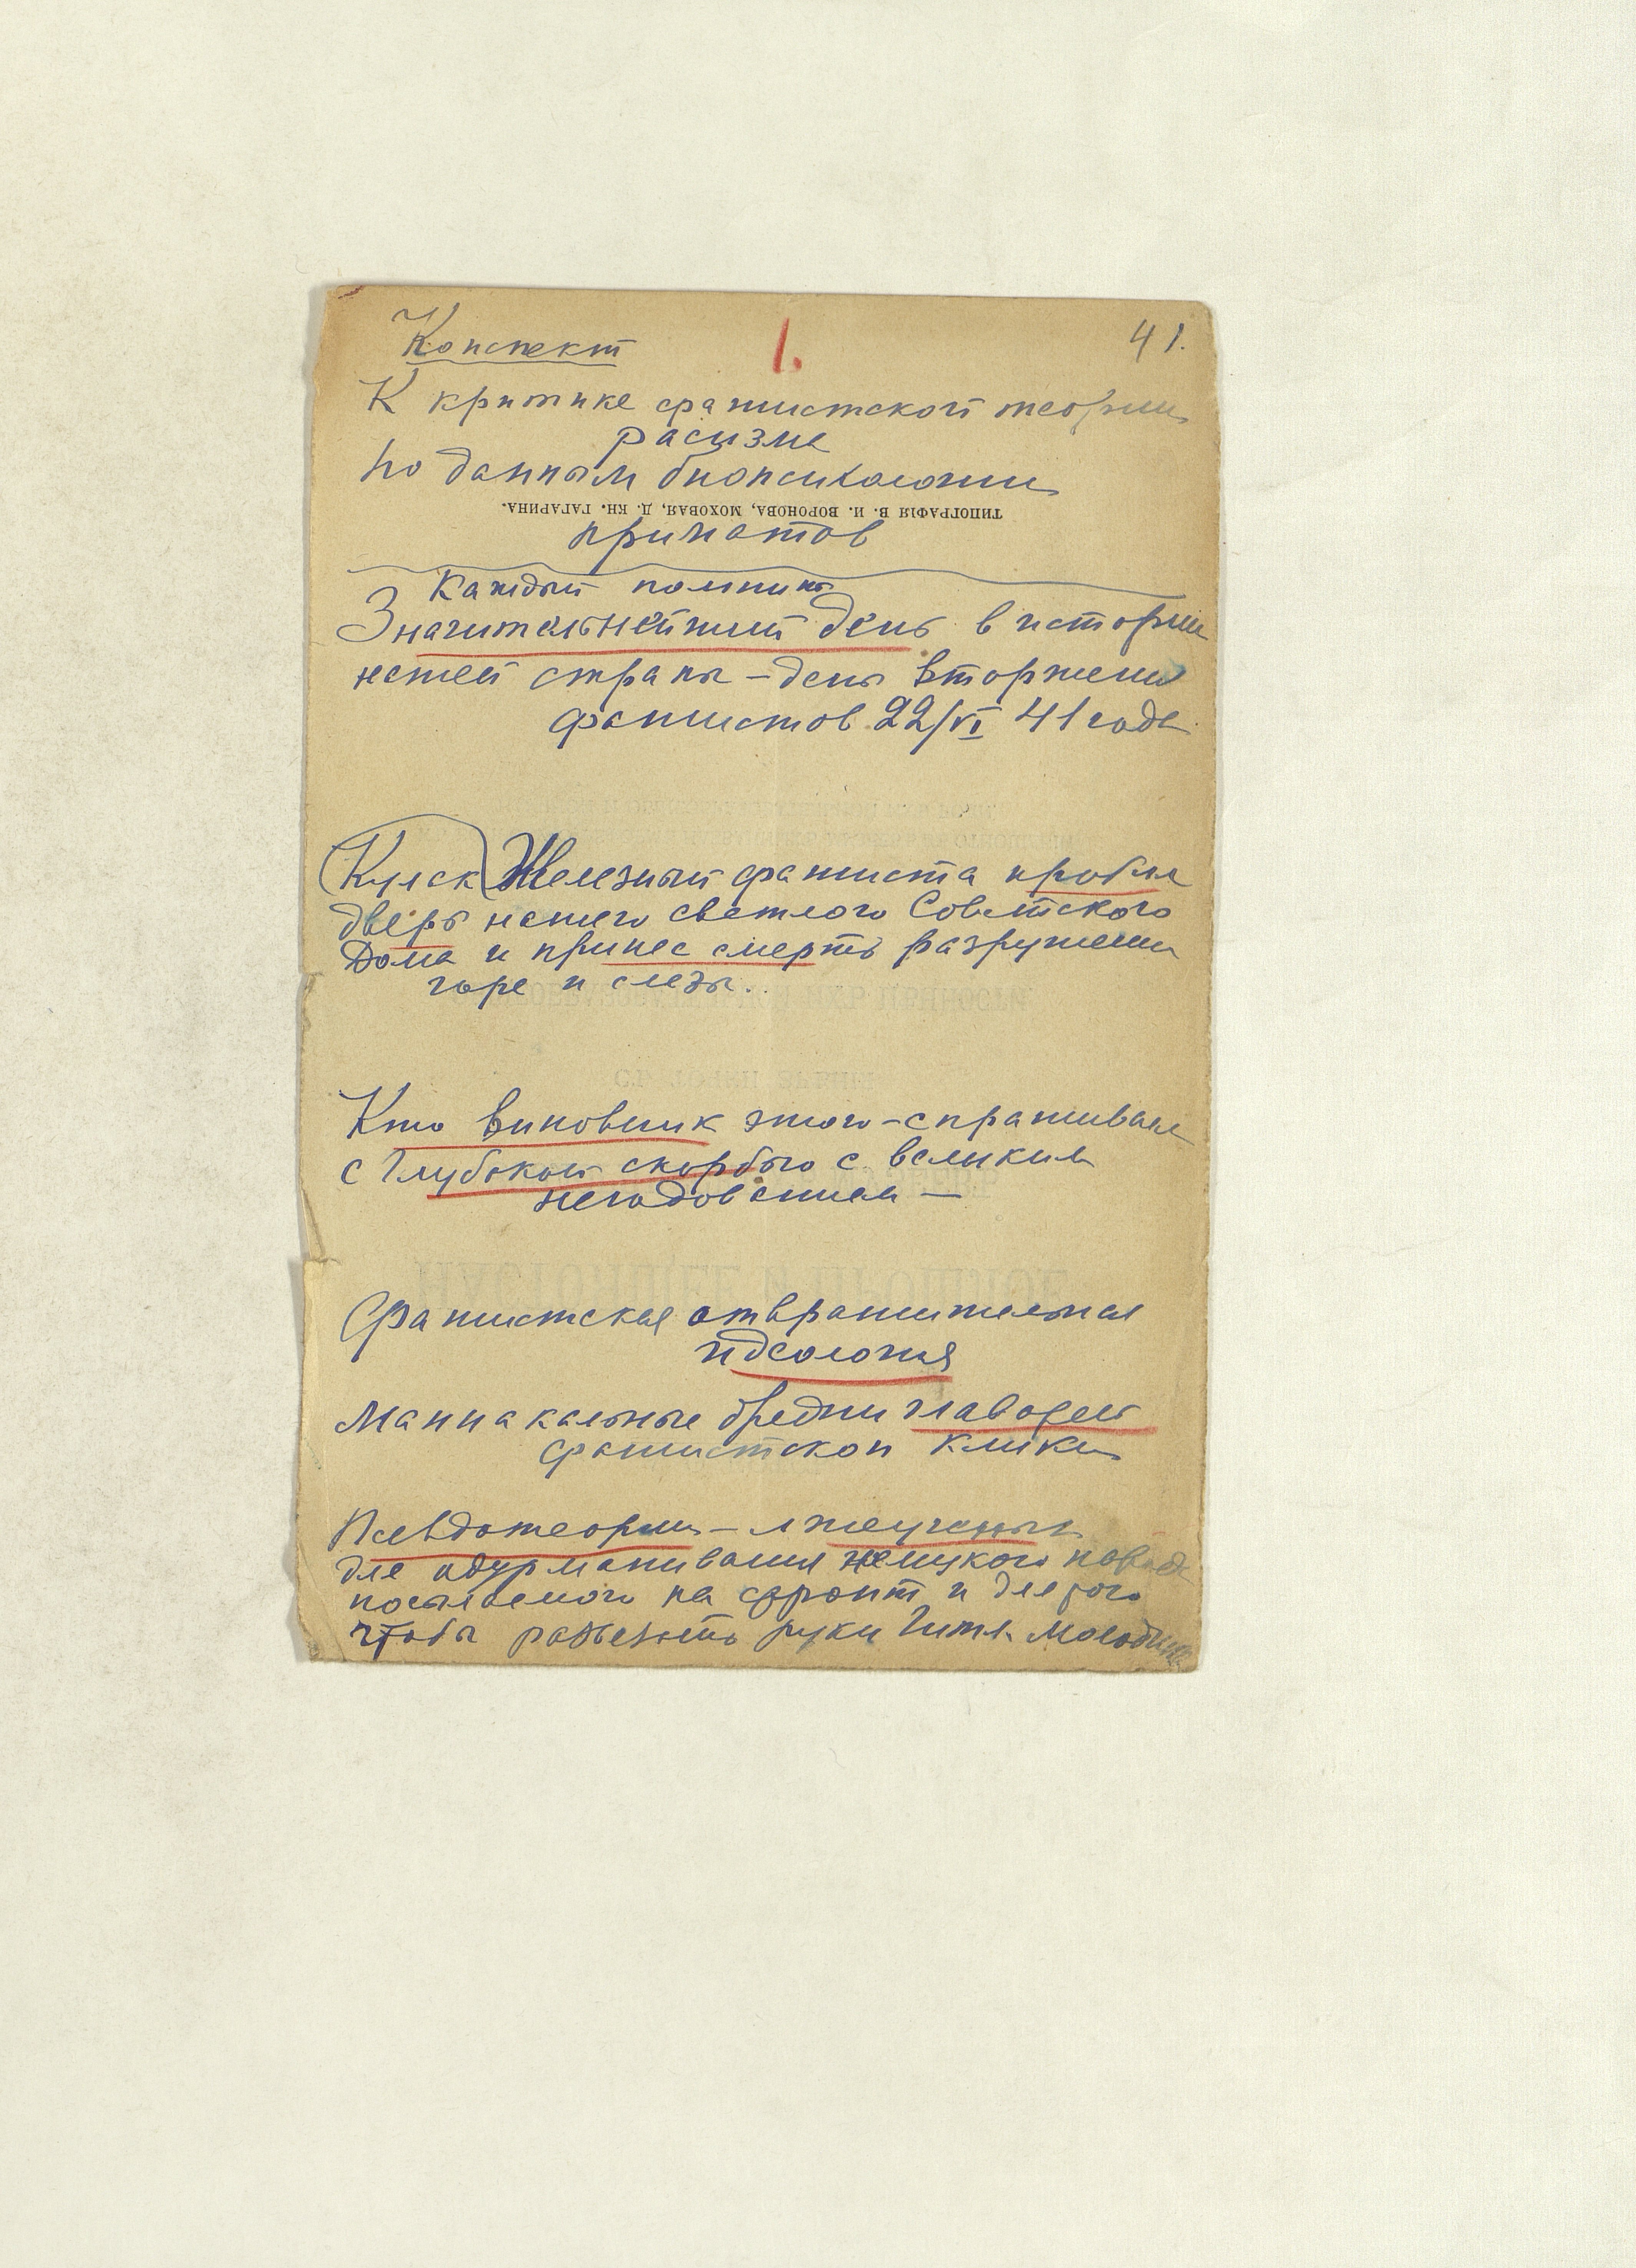 Конспект 1. 41.
К критике фашистской теории
расизма
по данным биопсихологии
ТИПОГРАФІЯ В. И. ВОРОНОВА, МОХОВАЯ, Д. КН. ГАГАРИНА.
приматов
Каждый помнит
Значительнейший день в истории
нашей страны – день вторжения
фашистов 22/VI 41 года
Кулак Железный фашиста пробил
дверь нашего светлого Советского
Дома и принес смерть разрушения
горе и слезы..
Кто виновник этого – спрашиваем
с глубокой скорбью с великим
негодованием —
Фашистская отвратительная
идеология
Маниакальные бредни главарей
фашистской клики
Псевдотеории – лжеученых
для одурманивания немецкого народа
посылаемого на фронт и для того
чтобы развязать руки Гитл.